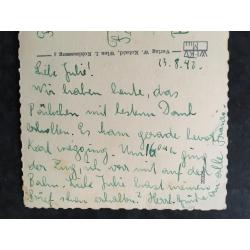 Verlag W. Kolaud, Wien I. Kohlmessergasse
WI-KO
13.8.42.
Liebe Julie!
Wir haben heute, das
Päckchen mit bestem Dank
erhalten. Es kam gerade bevor
Karl wegging. Um
der Zug, ich war mit auf der
Bahn. Liebe Julie hast meinen
Brief schon erhalten? Herzl. Grüße
an alle